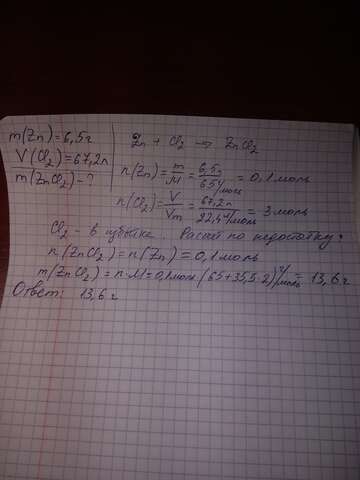 m(Zn)=6,5г
V(Cl₂)=67,2л
m(ZnCl₂)-?
Zn + Cl₂ → ZnCl₂
n(Zn)=m/M=6,5г/65г/моль=0,1моль
n(Cl₂)=V/Vm=67,2л/22,4л/моль=3моль
Cl₂ - в избытке Расчет по недостатку:
n(ZnCl₂)=n(Zn)=0,1моль
m(ZnCl₂)=n·M=0,1моль·(65+35,5·2)г/моль=13,6г
Ответ: 13,6г